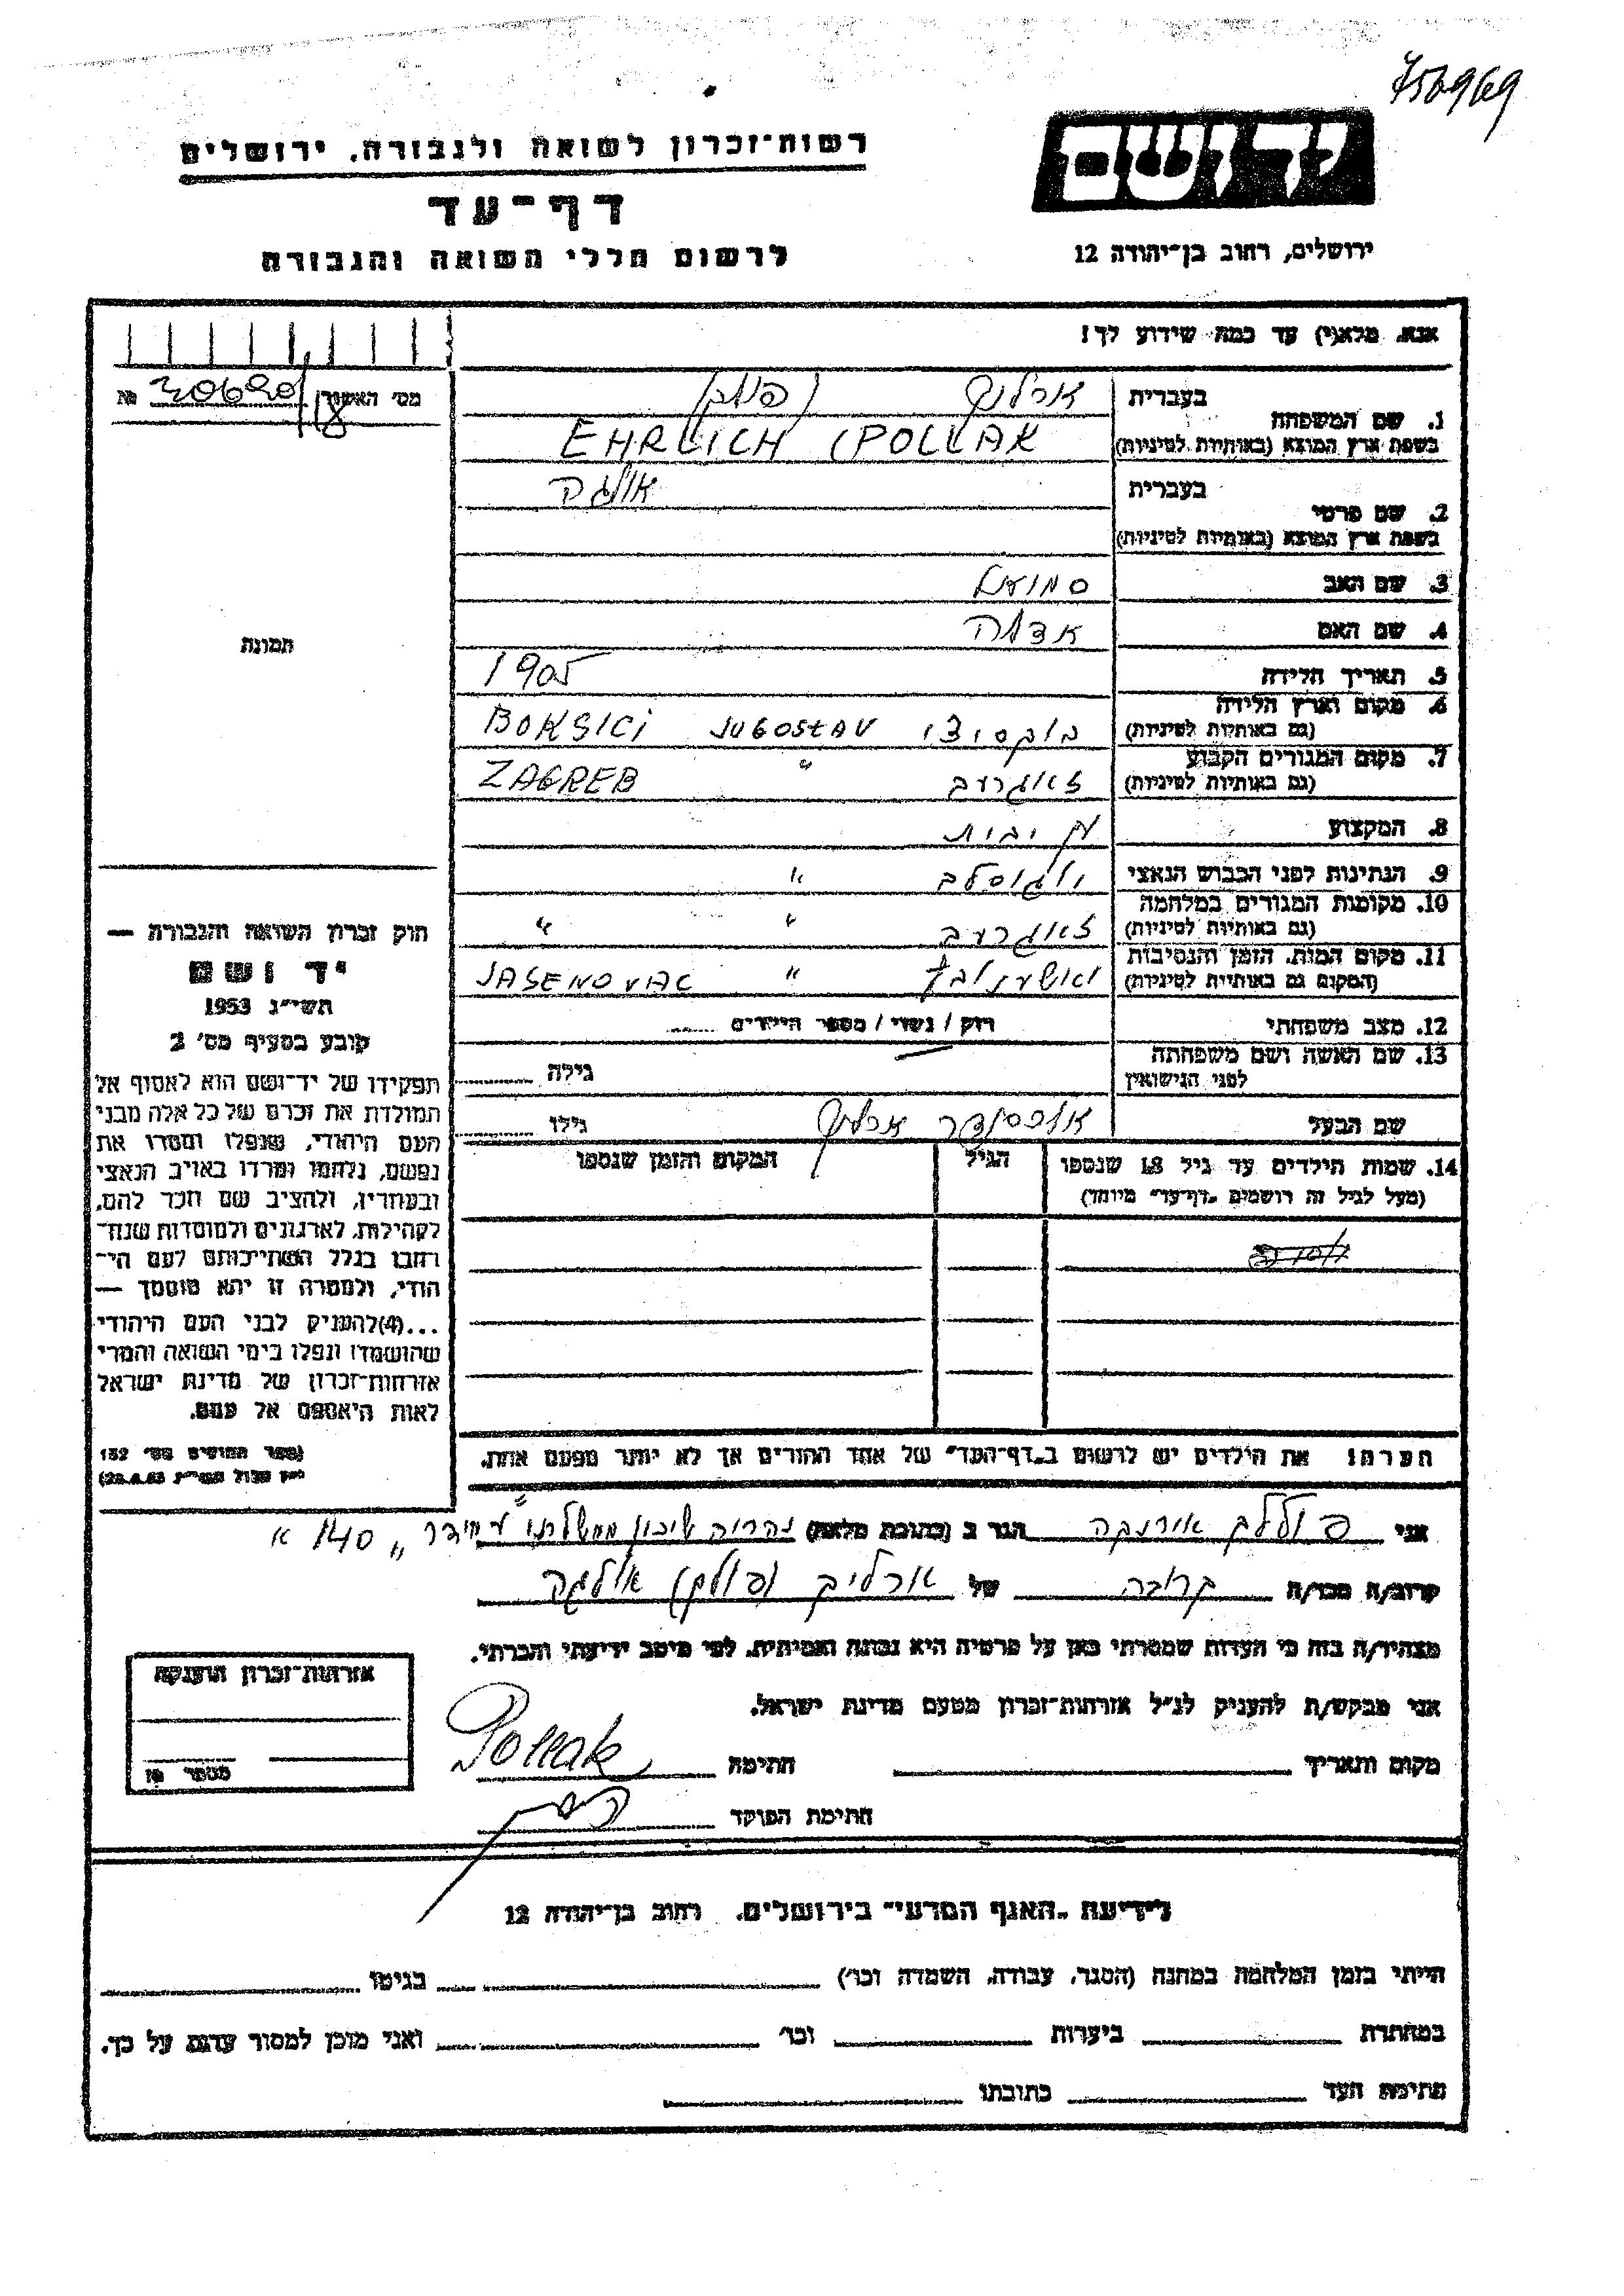 756969
רשות-זכרון לשואה ולגבורה, ירושלים
יד ושם
דף-עד
לרשום חללי השואה והגבורה
ירושלים, רחוב בן-יהודה 12
אנא, מלא(י) עד כמה שידוע לך!
מס' האשור № 306290/18
1. שם המשפחה
בעברית ארליך (פולק)
בשפת ארץ המוצא (באותיות לטיניות) EHRLICH (POLLAK
2. שם פרטי
בעברית אולגה
בשפת ארץ המוצא (באותיות לטיניות)
3. שם האב סמואל
4. שם האם
תמונה
5. תאריך הלידה 1905
6. מקום וארץ הלידה
(גם באותיות לטיניות) בוקסיצי JUGOSLAV BOKSICI
7. מקום המגורים הקבוע
(גם באותיות לטיניות) זאגרעב " ZAGREB
8. המקצוע עק' בית
9. הנתינות לפני הכבוש הנאצי יוגוסלב "
10. מקומות המגורים במלחמה
(גם באותיות לטיניות) זאגרעב " "
11. מקום המות, הזמן והנסיבות
(המקום גם באותיות לטיניות) " JASENOVAC
12. מצב משפחתי רוק / נשוי / מספר הילדים ......
13. שם האשה ושם משפחתה
לפני הנישואין גילה
שם הבעל אלכסנדר ארליך גילו
14. שמות הילדים עד גיל 18 שנספו הגיל המקום והזמן שנספו
(מעל לגיל זה רושמים "דף-עד" מיוחד)
חוק זכרון השואה והגבורה —
יד ושם
תשי"ג 1953
קובע בסעיף מס' 2
תפקידו של יד-ושם הוא לאסוף אל
המולדת את זכרם של כל אלה מבני
העם היהודי, שנפלו ומסרו את
נפשם, נלחמו ומרדו באויב הנאצי
ובעוזריו, ולהציב שם וזכר להם,
לקהילות, לארגונים ולמוסדות שנח-
רבו בגלל השתייכותם לעם הי-
הודי, ולמטרה זו יהא מוסמך —
...(4)להעניק לבני העם היהודי
שהושמדו ונפלו בימי השואה והמרי
אזרחות-זכרון של מדינת ישראל
לאות היאספם אל עמם.
(ספר החוקים מס' 132
הערה! את הילדים יש לרשום ב"דף-העד" של אחד ההורים אך לא יותר מפעם אחת.
אני פולק הגר ב (כתובת מלאה) נהריה שיכון ממשלתי 140 א
קרוב/ה מכר/ה קרובה של ארליך (פולק) אולגה
מצהיר/ה בזה כי העדות שמסרתי כאן על פרטיה היא נכונה ואמיתית, לפי מיטב ידיעתי והכרתי.
אני מבקש/ת להעניק לנ"ל אזרחות-זכרון מטעם מדינת ישראל.
מקום ותאריך חתימה Pollak
חתימת הפוקד
אזרחות-זכרון הוענקה
מספר №
לידיעת "האגף המדעי" בירושלים, רחוב בן-יהודה 12
הייתי בזמן המלחמה במחנה (הסגר, עבודה, השמדה וכו') בגיטו
במחתרת ביערות וכו' ואני מוכן למסור עדות על כך.
חתימת העד כתובתו